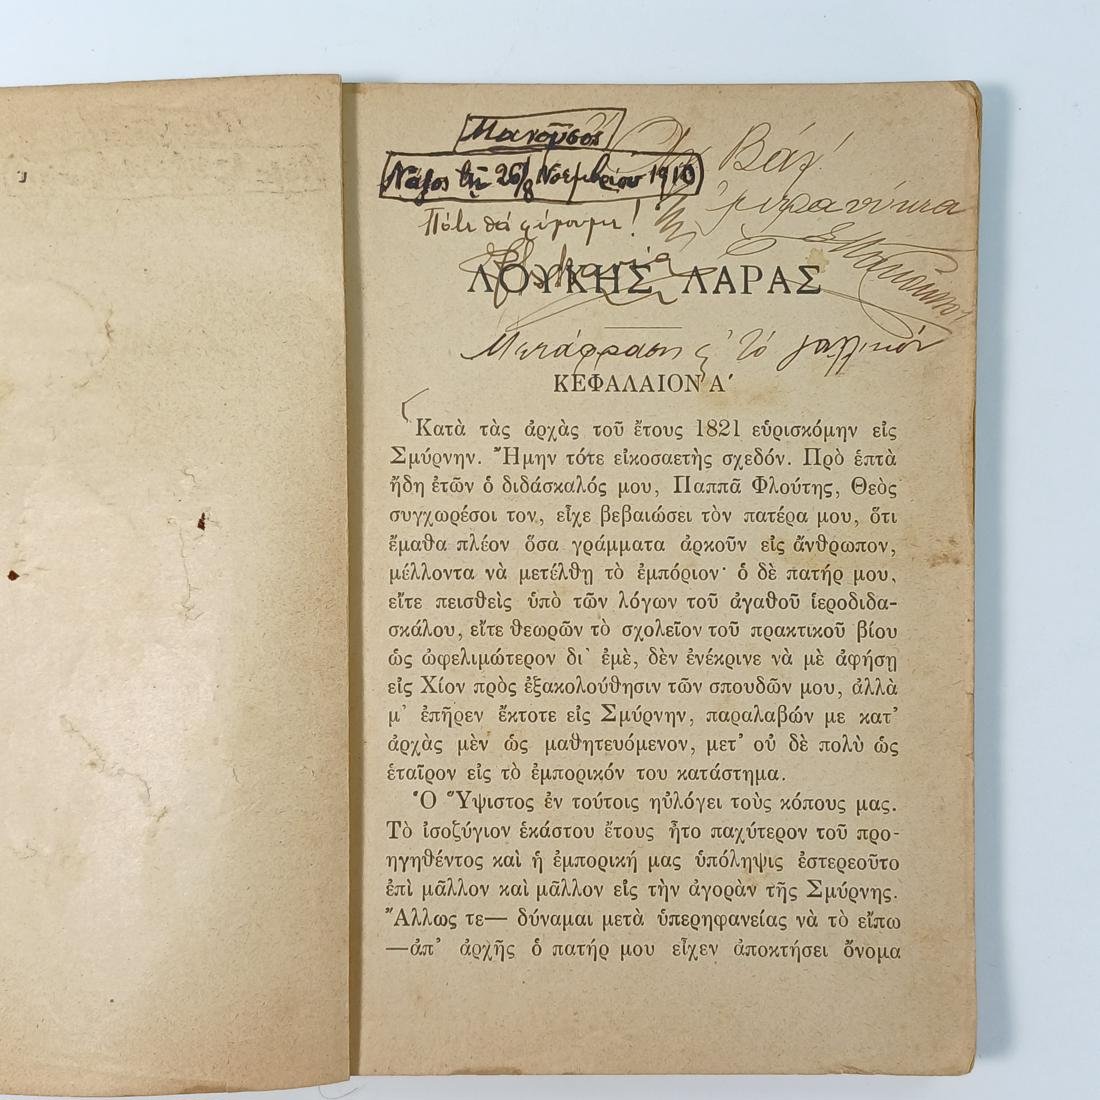 Μανοῦσος
Νάξος τῇ 26/8 Νοεμβρίου 1910
Πότε θὰ φύγουμε!
Βάγ!
ΛΟΥΚΗΣ ΛΑΡΑΣ
Μετάφρασις τὸ γαλλικόν
ΚΕΦΑΛΑΙΟΝ Α΄
Κατὰ τὰς ἀρχὰς τοῦ ἔτους 1821 εὑρισκόμην εἰς
Σμύρνην. Ἤμην τότε εἰκοσαετὴς σχεδόν. Πρὸ ἑπτὰ
ἤδη ἐτῶν ὁ διδάσκαλός μου, Παππᾶ Φλούτης, Θεὸς
συγχωρέσοι τον, εἶχε βεβαιώσει τὸν πατέρα μου, ὅτι
ἔμαθα πλέον ὅσα γράμματα ἀρκοῦν εἰς ἄνθρωπον,
μέλλοντα νὰ μετέλθῃ τὸ ἐμπόριον· ὁ δὲ πατήρ μου,
εἴτε πεισθεὶς ὑπὸ τῶν λόγων τοῦ ἀγαθοῦ ἱεροδιδα-
σκάλου, εἴτε θεωρῶν τὸ σχολεῖον τοῦ πρακτικοῦ βίου
ὡς ὠφελιμώτερον δι᾽ ἐμέ, δὲν ἐνέκρινε νὰ μὲ ἀφήσῃ
εἰς Χίον πρὸς ἐξακολούθησιν τῶν σπουδῶν μου, ἀλλὰ
μ᾽ ἐπῆρεν ἔκτοτε εἰς Σμύρνην, παραλαβών με κατ᾽
ἀρχὰς μὲν ὡς μαθητευόμενον, μετ᾽ οὐ δὲ πολὺ ὡς
ἑταῖρον εἰς τὸ ἐμπορικόν του κατάστημα.
Ὁ Ὕψιστος ἐν τούτοις ηὐλόγει τοὺς κόπους μας.
Τὸ ἰσοζύγιον ἑκάστου ἔτους ἦτο παχύτερον τοῦ προ-
ηγηθέντος καὶ ἡ ἐμπορική μας ὑπόληψις ἐστερεοῦτο
ἐπὶ μᾶλλον καὶ μᾶλλον εἰς τὴν ἀγορὰν τῆς Σμύρνης.
Ἄλλως τε— δύναμαι μετὰ ὑπερηφανείας νὰ τὸ εἴπω
—ἀπ᾽ ἀρχῆς ὁ πατήρ μου εἶχεν ἀποκτήσει ὄνομα